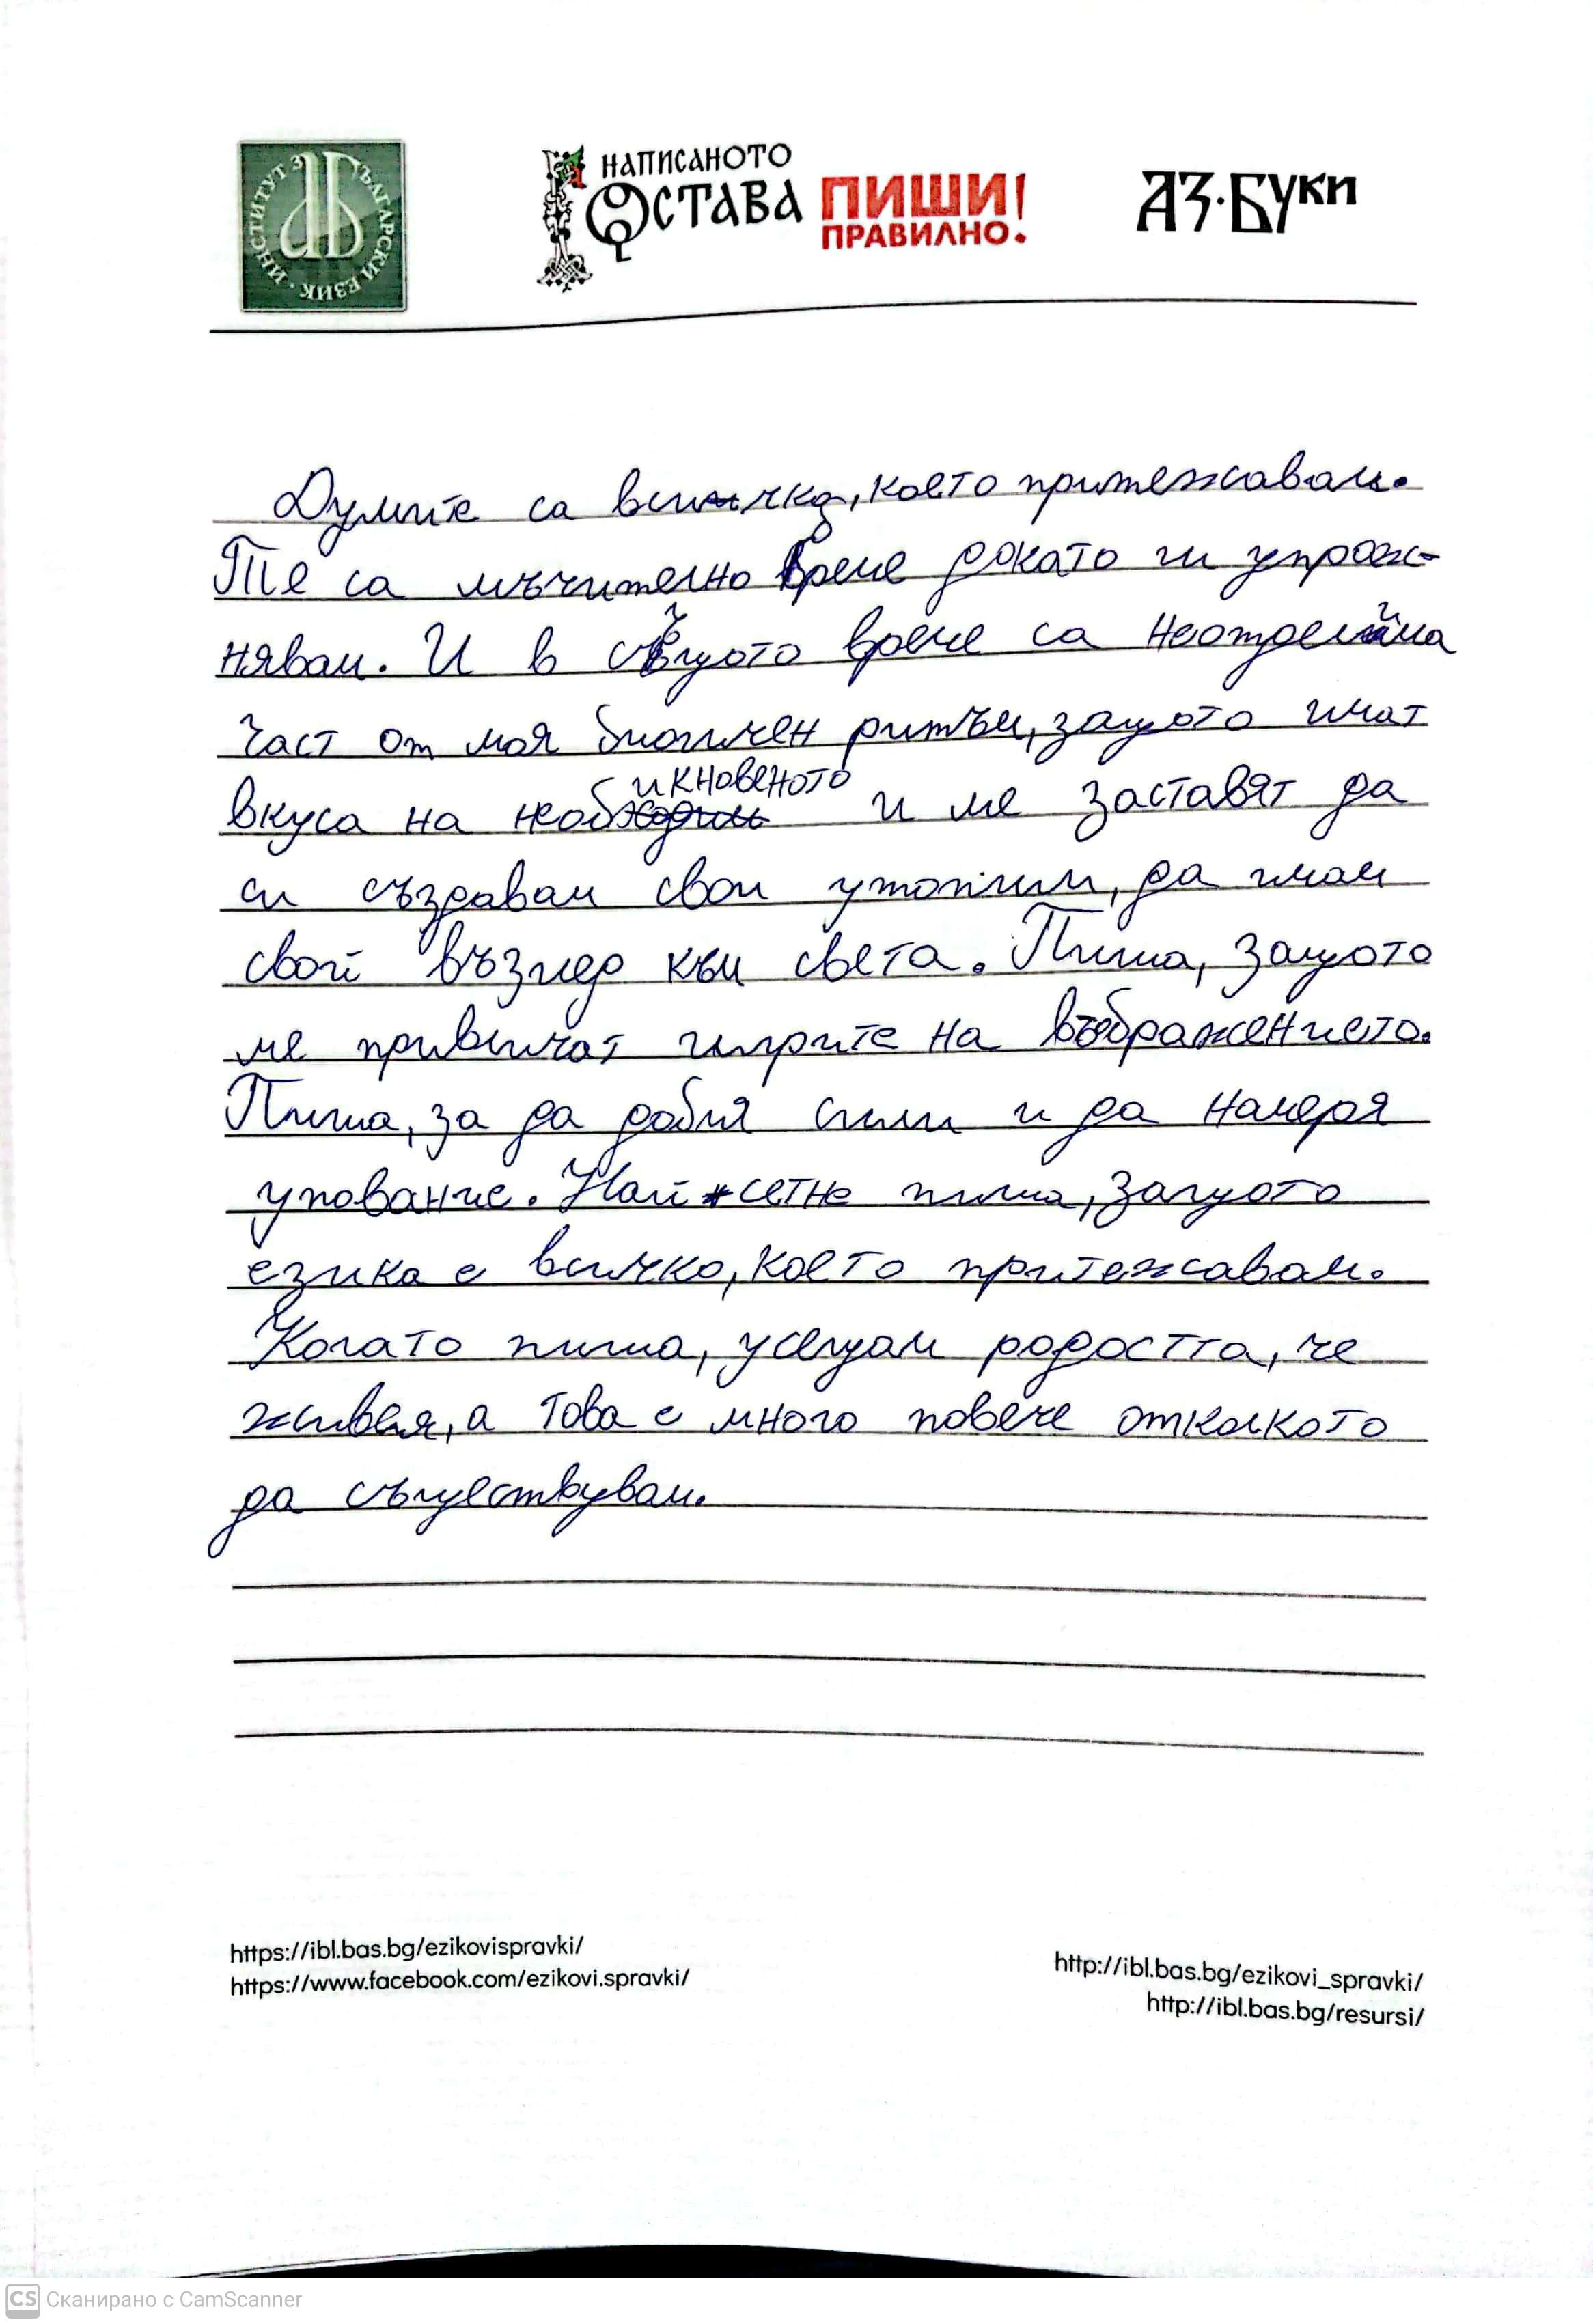 ИНСТИТУТ ЗА БЪЛГАРСКИ ЕЗИК
НАПИСАНОТО
ОСТАВА
ПИШИ!
ПРАВИЛНО.
АЗ·БУКИ
Думите са всичко, което притежавам.
Те са мъчително време докато ги упраж-
нявам. И в същото време са неотделима
част от моя биологичен ритъм, защото имат
вкуса на необикновеното и ме заставят да
си създавам свои утопии, да имам
свой възглед към света. Пиша, защото
ме привличат игрите на въображението.
Пиша, за да добия сили и да намеря
упование. Най-сетне пиша, защото
езика е всичко, което притежавам.
Когато пиша, усещам радостта, че
живея, а това е много повече отколкото
да съществувам.
https://ibl.bas.bg/ezikovispravki/
https://www.facebook.com/ezikovi.spravki/
http://ibl.bas.bg/ezikovi_spravki/
http://ibl.bas.bg/resursi/
CS Сканирано с CamScanner